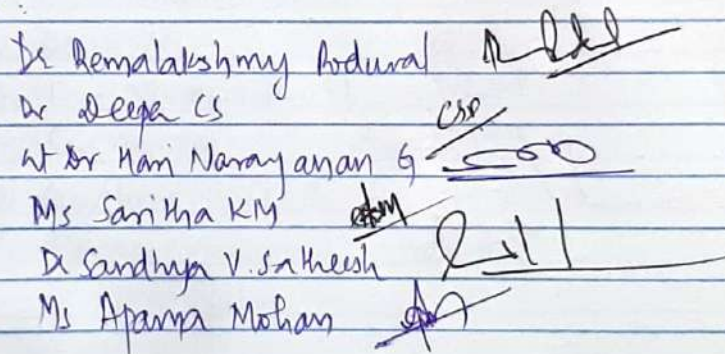 Dr Remalakshmy Poduval
Dr Deepa CS
Lt Dr Hari Narayanan G
Ms Saritha KM
Dr Sandhya V. Satheesh
Ms Aparna Mohan